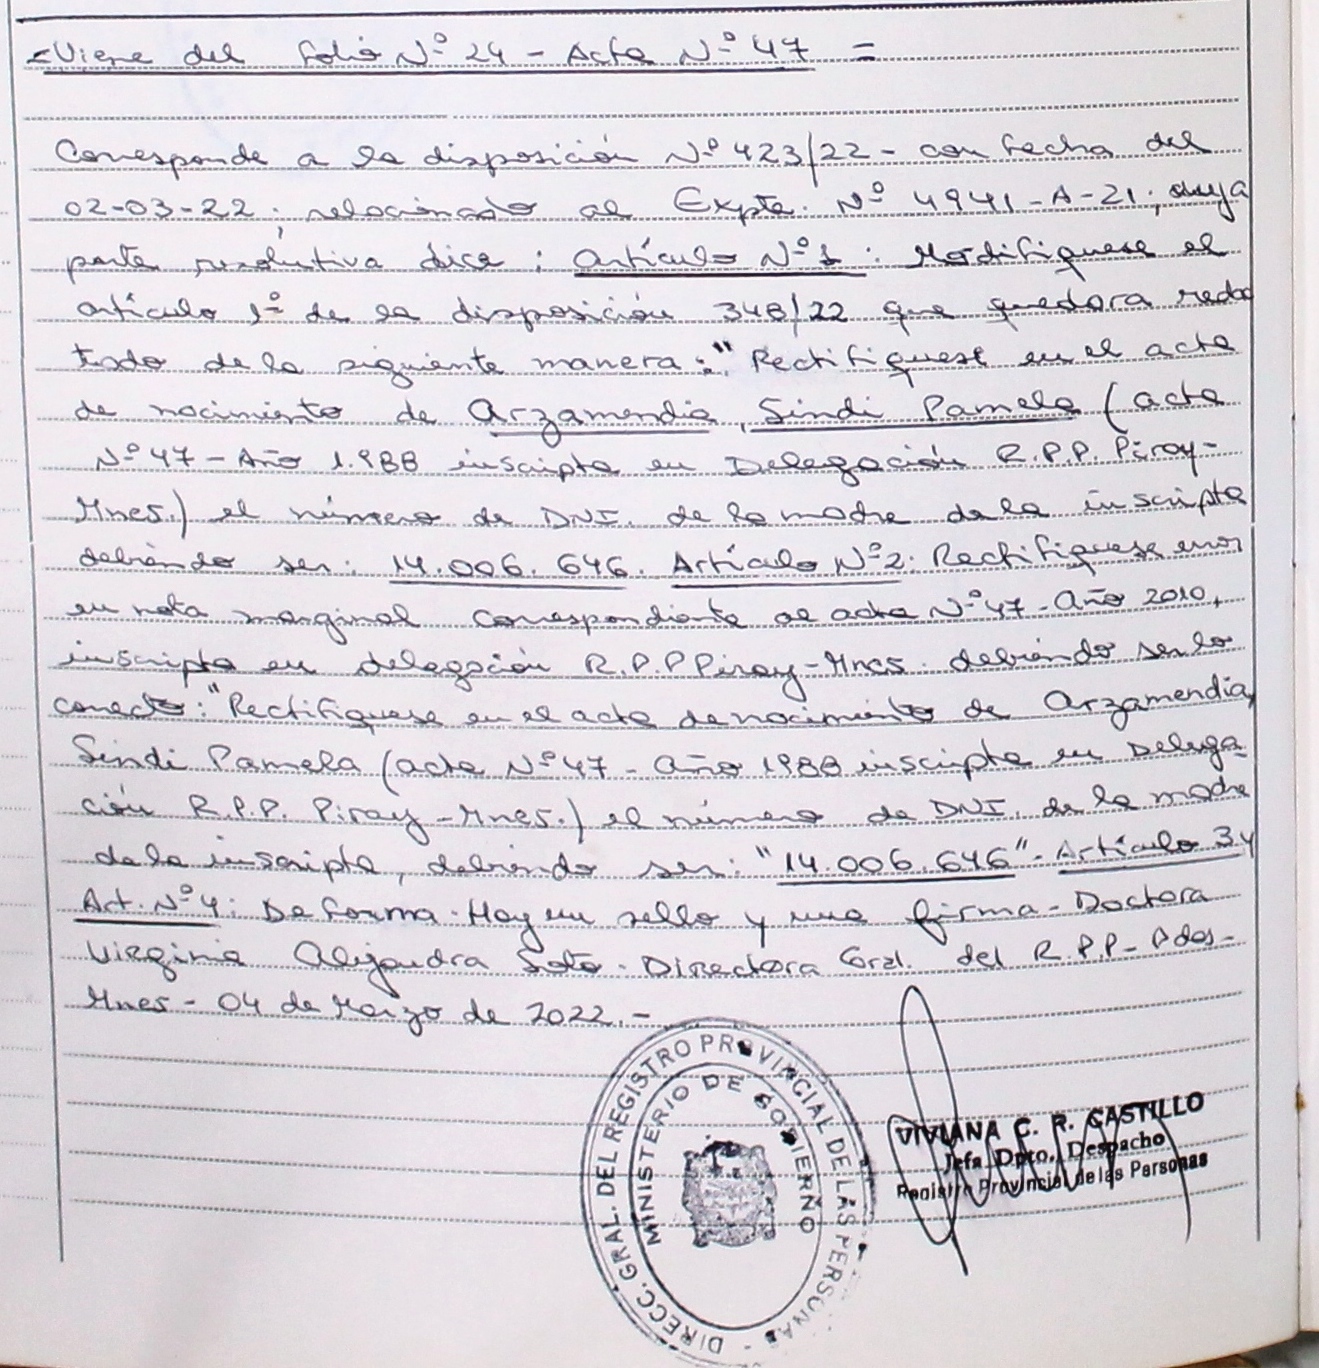 =Viene del folio Nº 24 - Acta Nº 47 =
Corresponde a la disposición Nº 423/22 - con fecha del
02-03-22; relacionado al Expte. Nº 4941-A-21; cuya
parte resolutiva dice: Artículo Nº 1: Modifiquese el
artículo 1º de la disposición 348/22 que quedara redac
tado de la siguiente manera: "Rectifiquese en el acta
de nacimiento de Arzamendia, Sindi Pamela (acta
Nº 47 - Año 1.988 inscripta en Delegación R.P.P. Piray-
Mnes.) el número de DNI. de la madre de la inscripta
debiendo ser: 14.006.646. Artículo Nº 2: Rectifiquese error
en nota marginal correspondiente al acta Nº 47 - Año 2010,
inscripta en delegación R.P.P Piray-Mnes. debiendo ser lo
correcto: "Rectifiquese en el acta de nacimiento de Arzamendia,
Sindi Pamela (acta Nº 47 - Año 1988 inscripta en Delega
ción R.P.P. Piray-Mnes.) el número de DNI. de la madre
de la inscripta, debiendo ser: "14.006.646" - Artículo 3 y
Art. Nº 4: De forma. Hay un sello y una firma - Doctora
Virginia Alejandra Soto. Directora Gral. del R.P.P - Pdas-
Mnes - 04 de Marzo de 2022.-
DIRECC. GRAL. DEL REGISTRO PROVINCIAL DE LAS PERSONAS -
MINISTERIO DE GOBIERNO
VIVIANA C. R. CASTILLO
Jefa Dpto. Despacho
Registro Provincial de las Personas